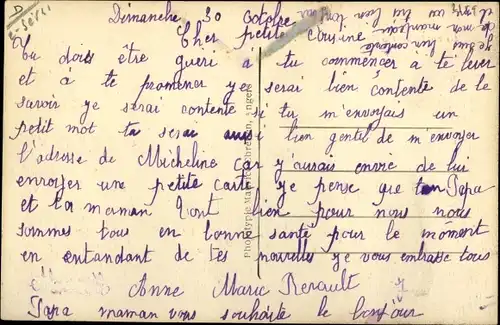 Dimanche 30 octobre
Cher petite cousine
Tu dois etre gueri a tu commencer a te lever
et a te promener ye serai bien contente de le
savoir ye serai contente si tu m'envoyais un
petit mot ta serai aussi bien gentil de m'envoyer
l'adresse de Micheline car y'aurais envie de lui
envoyer une petite carte ye pense que ton Papa
et ta maman vont bien pour nous nous
sommes tous en bonne santé pour le moment
en entandant de tes nouvelles ye vous embrasse tous
Anne Marie Renault
Papa maman vous souhaite le bonjour
ye suis bien contente
de mon manteau
il me va tres bien
Phototypie